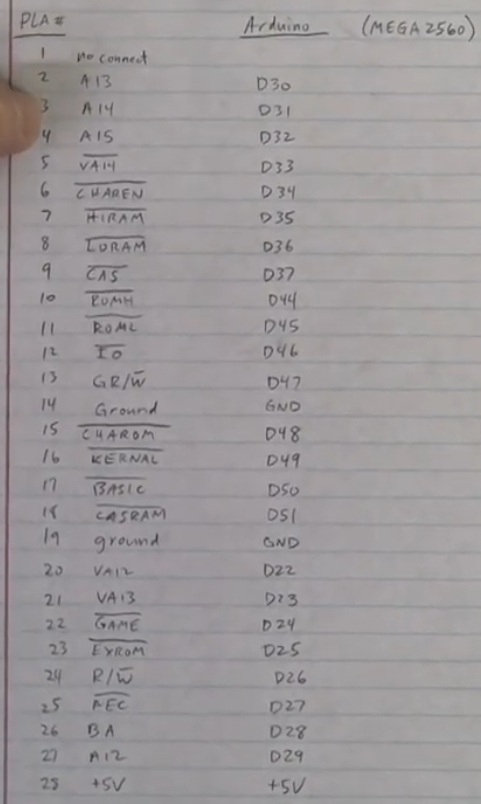 PLA # Arduino (MEGA 2560)
1 no connect
2 A13 D30
3 A14 D31
4 A15 D32
5 V̅A̅1̅4̅ D33
6 C̅H̅A̅R̅E̅N̅ D34
7 H̅I̅R̅A̅M̅ D35
8 L̅O̅R̅A̅M̅ D36
9 C̅A̅S̅ D37
10 R̅O̅M̅H̅ D44
11 R̅O̅M̅L̅ D45
12 I̅O̅ D46
13 GR/W̅ D47
14 Ground GND
15 C̅H̅A̅R̅O̅M̅ D48
16 K̅E̅R̅N̅A̅L̅ D49
17 B̅A̅S̅I̅C̅ D50
18 C̅A̅S̅R̅A̅M̅ D51
19 ground GND
20 VA12 D22
21 VA13 D23
22 G̅A̅M̅E̅ D24
23 E̅X̅R̅O̅M̅ D25
24 R/W̅ D26
25 A̅E̅C̅ D27
26 BA D28
27 A12 D29
28 +5V +5V